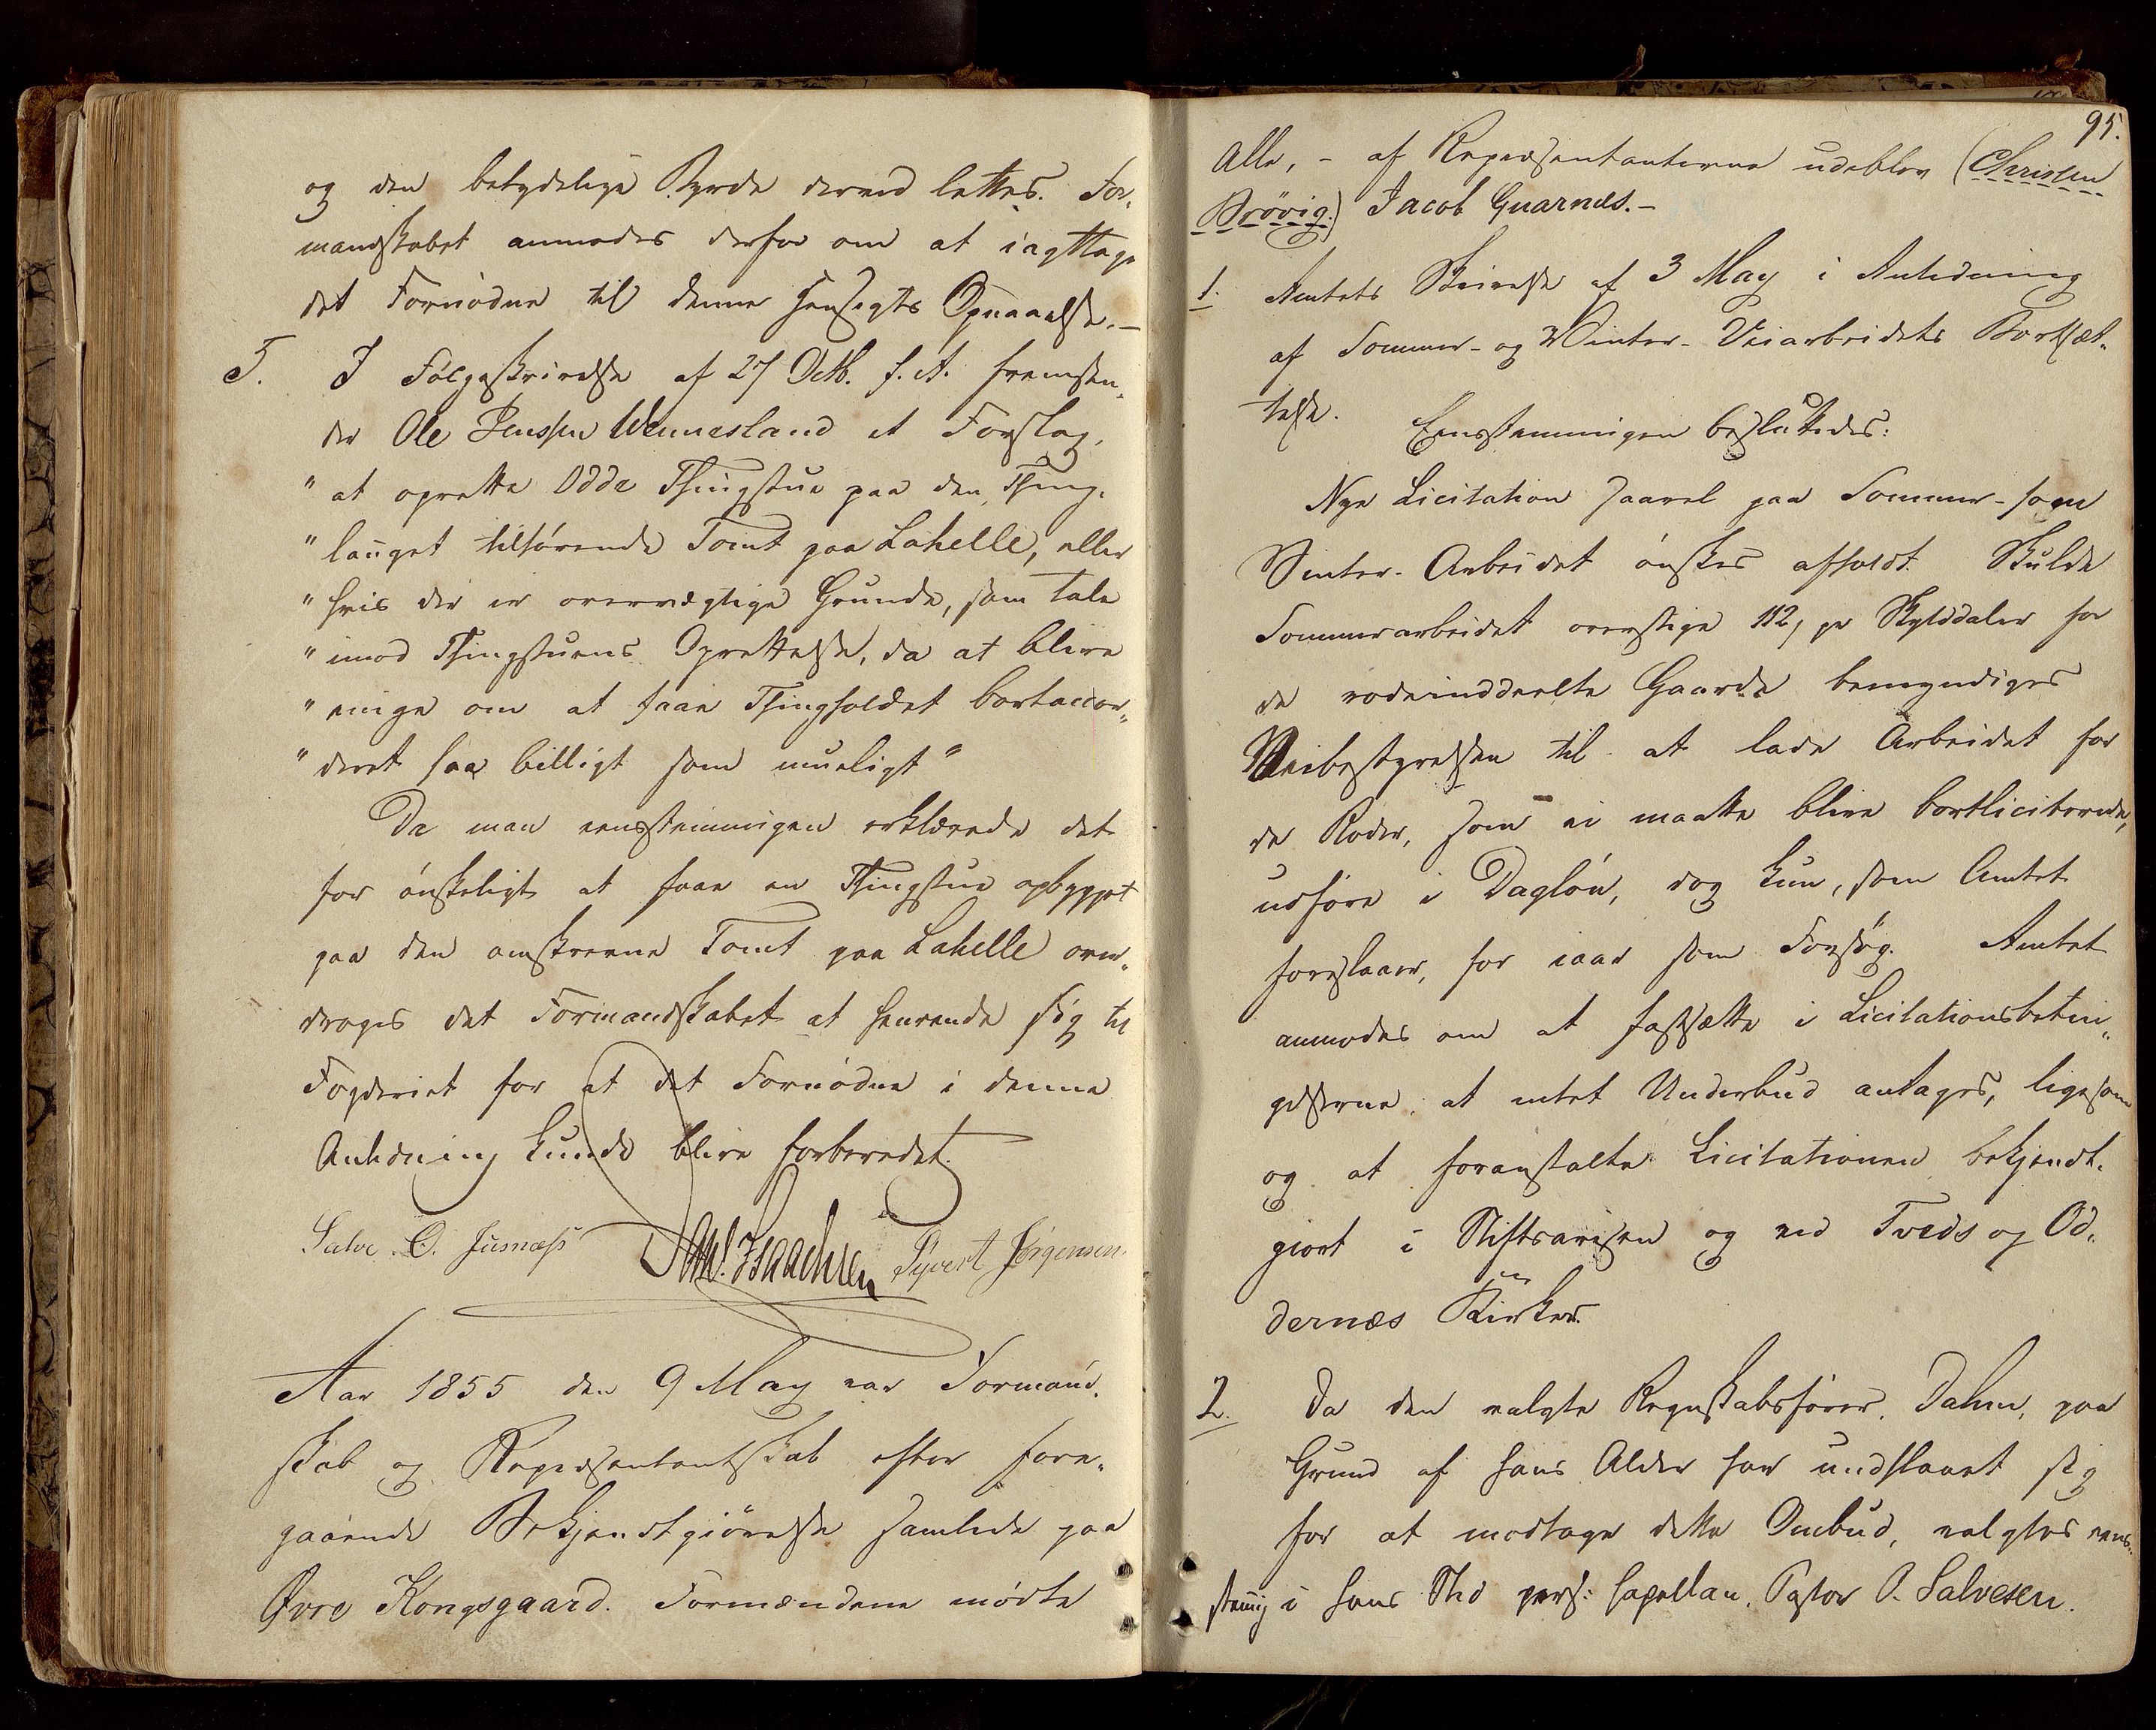 og den betydelige Byrde derved lettes. For-
mandskabet anmodes derfor om at iagttage
det Fornødne til denne Hensigts Opnaaelse.-
5. I Følgeskrivelse af 27 Octb. f. A. fremsen-
der Ole Jenssen Wennesland et Forslag,
" at oprette Odde Thingstue paa den Thing-
" lauget tilhørende Tomt paa Lahelle, eller
" hvis der er overvægtige Grunde, som tale
" imod Thingstuens Oprettelse, da at blive
" enige om at faae Thingholdet bortaccor-
" deret saa billigt som mueligt"
Da man eensstemmigen erklærede det
for ønskeligt at faae en Thingstue opbygget
paa den omskrevne Tomt paa Lahelle over-
drages det Formandskabet at henvende sig til
Fogderiet for at det Fornødne i denne
Anledning kunde blive forberedet.
Salve O. Jusnæss Isaachsen Syvert Jørgensen
Aar 1855 den 9 May var Formand-
skab og Repræsentantskab efter fore-
gaaende Bekjendtgiørelse samlede paa
Øvre Kongsgaard. Formændene mødte
95.
Alle, - af Repræsentanterne udeblev (Christen
Brøvig.) Jacob Quarnes.-
1. Amtets Skrivelse af 3 May i Anledning
af Sommer- og Vinter- Veiarbeidets Bortsæt-
telse. Eensstemmigen besluttedes:
Nye Licitation saavel paa Sommer- som
Vinter- Arbeidet ønskes afholdt. Skulde
Sommerarbeidet overstige 112 / pr Skylddaler for
de rodeinddeelte Gaarde bemyndiges
Veibestyrelsen til at lade Arbeidet for
de Roder, som ei maatte blive bortliciterede,
udføre i Dagløn, dog kun, som Amtet
foreslaaer, for iaar som Forsøg. Amtet
anmodes om at fastsætte i Licitationsbetin-
gelserne, at intet Underbud antages, ligesom
og at foranstalte Licitationen bekjendt-
giort i Stiftsavisen og ved Tveds og Od-
dernæs Kirker.
2. Da den valgte Regnskabsfører, Dahm, paa
Grund af hans Alder har undslaaet sig
for at modtage dette Ombud, valgtes eens-
stemig i hans Sted pers: Capellan, Pastor O. Salvesen.